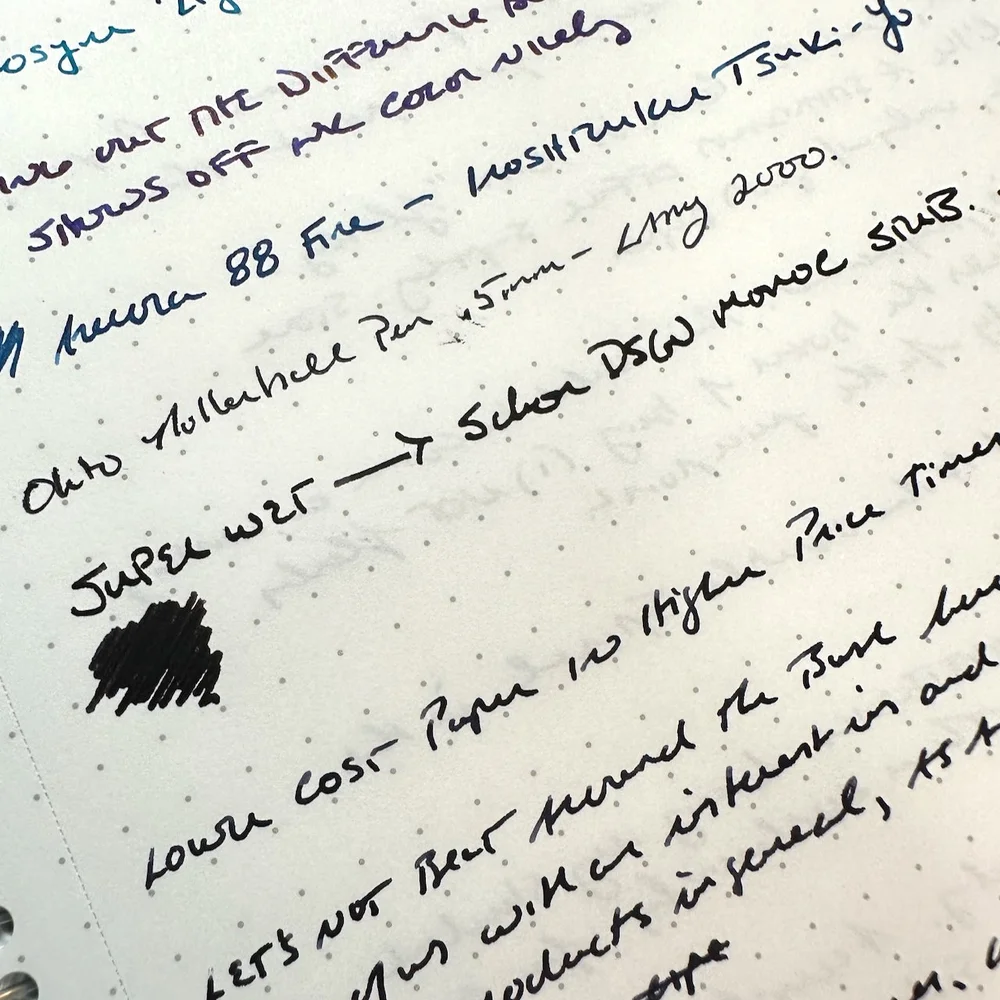 out the Difference
shows off the color nicely
Aurora 88 Fine - Iroshizuku Tsuki-yo
Ohto Rollerball Pen .5mm - Lamy 2000.
SUPER WET → Schon DSGN MONOC STUB.
LOWER COST Paper in Higher Price Times
LET'S NOT Beat Around the Bush here
of us with an interest in and
products in general, As
type